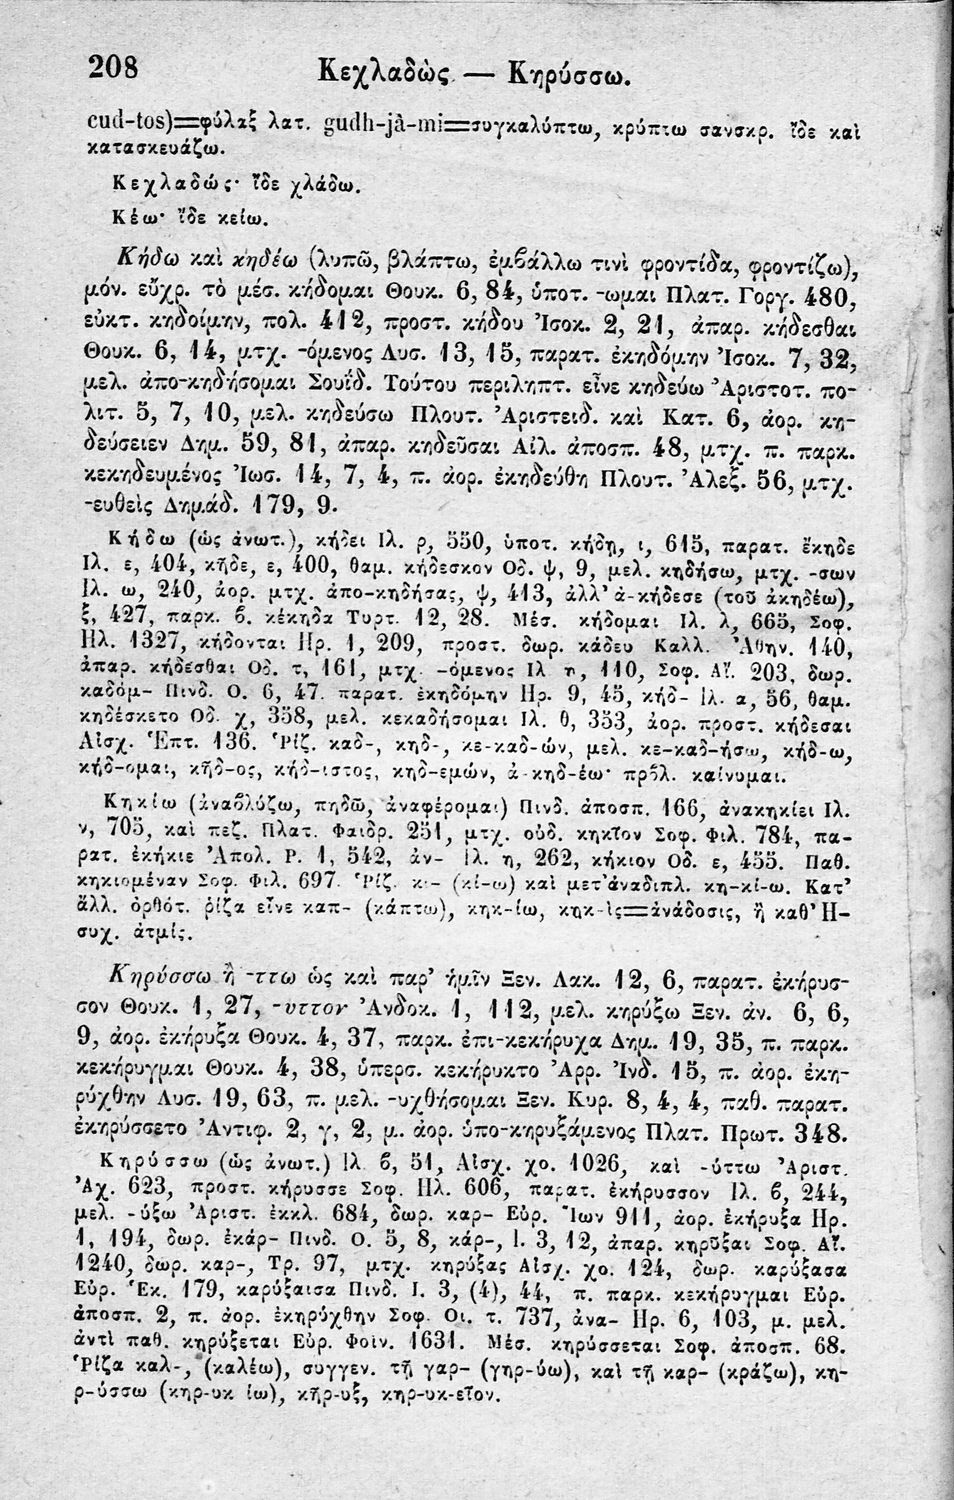 208 Κεχλαδὼς — Κηρύσσω.
cud-tos)=φύλαξ λατ. gudh-jâ-mi=συγκαλύπτω, κρύπτω σανσκρ. ἴδε καὶ
κατασκευάζω.
Κεχλαδώς· ἴδε χλάδω.
Κέω· ἴδε κείω.
Κήδω καὶ κηδέω (λυπῶ, βλάπτω, ἐμβάλλω τινὶ φροντίδα, φροντίζω),
μόν. εὔχρ. τὸ μέσ. κήδομαι Θουκ. 6, 84, ὑποτ. -ωμαι Πλατ. Γοργ. 480,
εὐκτ. κηδοίμην, πολ. 412, προστ. κήδου Ἰσοκ. 2, 21, ἀπαρ. κήδεσθαι
Θουκ. 6, 14, μτχ. -όμενος Λυσ. 13, 15, παρατ. ἐκηδόμην Ἰσοκ. 7, 32,
μελ. ἀπο-κηδήσομαι Σουΐδ. Τούτου περιληπτ. εἶνε κηδεύω Ἀριστοτ. πο-
λιτ. 5, 7, 10, μελ. κηδεύσω Πλουτ. Ἀριστειδ. καὶ Κατ. 6, ἀορ. κη-
δεύσειεν Δημ. 59, 81, ἀπαρ. κηδεῦσαι Αἰλ. ἀποσπ. 48, μτχ. π. παρκ.
κεκηδευμένος Ἰωσ. 14, 7, 4, π. ἀορ. ἐκηδεύθη Πλουτ. Ἀλεξ. 56, μτχ.
-ευθεὶς Δημάδ. 179, 9.
Κήδω (ὡς ἀνωτ.), κήδει Ιλ. ρ, 550, ὑποτ. κήδη, ι, 615, παρατ. ἔκηδε
Ιλ. ε, 404, κῆδε, ε, 400, θαμ. κήδεσκον Οδ. ψ, 9, μελ. κηδήσω, μτχ. -σων
Ιλ. ω, 240, ἀορ. μτχ. ἀπο-κηδήσας, ψ, 413, ἀλλ' ἀ-κήδεσε (τοῦ ἀκηδέω),
ξ, 427, παρκ. β. κέκηδα Τυρτ. 12, 28. Μέσ. κήδομαι Ιλ. λ, 665, Σοφ.
Ηλ. 1327, κήδονται Ηρ. 1, 209, προστ. δωρ. κάδευ Καλλ. Ἀθην. 140,
ἀπαρ. κήδεσθαι Οδ. τ, 161, μτχ. -όμενος Ιλ η, 110, Σοφ. Αἴ. 203, δωρ.
καδόμ- Πινδ. Ο. 6, 47. παρατ. ἐκηδόμην Ηρ. 9, 45, κήδ- Ιλ. α, 56, θαμ.
κηδέσκετο Οδ. χ, 358, μελ. κεκαδήσομαι Ιλ. θ, 353, ἀορ. προστ. κήδεσαι
Αἰσχ. Ἑπτ. 136. Ῥίζ. καδ-, κηδ-, κε-καδ-ών, μελ. κε-καδ-ήσω, κήδ-ω,
κήδ-ομαι, κῆδ-ος, κήδ-ιστος, κηδ-εμών, ἀ-κηδ-έω· πρβλ. καίνυμαι.
Κηκίω (ἀναβλύζω, πηδῶ, ἀναφέρομαι) Πινδ. ἀποσπ. 166, ἀνακηκίει Ιλ.
ν, 705, καὶ πεζ. Πλατ. Φαιδρ. 251, μτχ. οὐδ. κηκῖον Σοφ. Φιλ. 784, πα-
ρατ. ἐκήκιε Ἀπολ. Ρ. 1, 542, ἀν- Ιλ. η, 262, κήκιον Οδ. ε, 455. Παθ.
κηκιομέναν Σοφ. Φιλ. 697. Ῥίζ. κι- (κί-ω) καὶ μετ' ἀναδιπλ. κη-κί-ω. Κατ'
ἄλλ. ὀρθότ. ῥίζα εἶνε καπ- (κάπτω), κηκ-ίω, κηκ-ὶς=ἀνάδοσις, ἢ καθ' Ἡ-
συχ. ἀτμίς.
Κηρύσσω ἢ -ττω ὡς καὶ παρ' ἡμῖν Ξεν. Λακ. 12, 6, παρατ. ἐκήρυσ-
σον Θουκ. 1, 27, -υττον Ἀνδοκ. 1, 112, μελ. κηρύξω Ξεν. ἀν. 6, 6,
9, ἀορ. ἐκήρυξα Θουκ. 4, 37, παρκ. ἐπι-κεκήρυχα Δημ. 19, 35, π. παρκ.
κεκήρυγμαι Θουκ. 4, 38, ὑπερσ. κεκήρυκτο Ἀρρ. Ἰνδ. 15, π. ἀορ. ἐκη-
ρύχθην Λυσ. 19, 63, π. μελ. -υχθήσομαι Ξεν. Κυρ. 8, 4, 4, παθ. παρατ.
ἐκηρύσσετο Ἀντιφ. 2, γ, 2, μ. ἀορ. ὑπο-κηρυξάμενος Πλατ. Πρωτ. 348.
Κηρύσσω (ὡς ἀνωτ.) Ιλ β, 51, Αἰσχ. χο. 1026, καὶ -ύττω Ἀριστ.
Ἀχ. 623, προστ. κήρυσσε Σοφ. Ηλ. 606, παρατ. ἐκήρυσσον Ιλ. β, 244,
μελ. -ύξω Ἀριστ. ἐκκλ. 684, δωρ. καρ- Εὐρ. Ἴων 911, ἀορ. ἐκήρυξα Ηρ.
1, 194, δωρ. ἐκάρ- Πινδ. Ο. 5, 8, κάρ-, Ι. 3, 12, ἀπαρ. κηρῦξαι Σοφ. Αἴ.
1240, δωρ. καρ-, Τρ. 97, μτχ. κηρύξας Αἰσχ. χο. 124, δωρ. καρύξασα
Εὐρ. Ἑκ. 179, καρύξαισα Πινδ. Ι. 3, (4), 44, π. παρκ. κεκήρυγμαι Εὐρ.
ἀποσπ. 2, π. ἀορ. ἐκηρύχθην Σοφ. Οι. τ. 737, ἀνα- Ηρ. 6, 103, μ. μελ.
ἀντὶ παθ. κηρύξεται Εὐρ. Φοίν. 1631. Μέσ. κηρύσσεται Σοφ. ἀποσπ. 68.
Ῥίζα καλ-, (καλέω), συγγεν. τῇ γαρ- (γηρ-ύω), καὶ τῇ καρ- (κράζω), κη-
ρ-ύσσω (κηρ-υκ ίω), κῆρ-υξ, κηρ-υκ-εῖον.